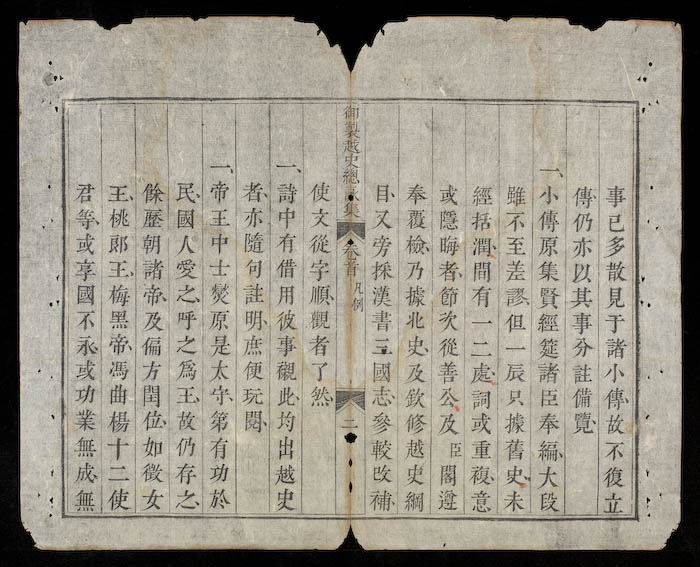 事已多散見于諸小傳故不復立
傳仍亦以其事分註備覽
一小傳原集賢經筵諸臣奉編大段
雖不至差謬但一辰只據舊史未
經括潤間有一二處詞或重複意
或隱晦者節次從善公及臣閣遵
奉覆檢乃據北史及欽修越史綱
目又旁採漢書三國志參較改補
御製越史總詠集 卷首 凡例 二
使文從字順觀者了然
一詩中有借用彼事襯此均出越史
者亦隨句註明庶便玩閱
一帝王中士燮原是太守第有功於
民國人愛之呼之爲王故仍存之
餘歷朝諸帝及偏方閏位如徵女
王桃郎王梅黑帝馮曲楊十二使
君等或享國不永或功業無成無